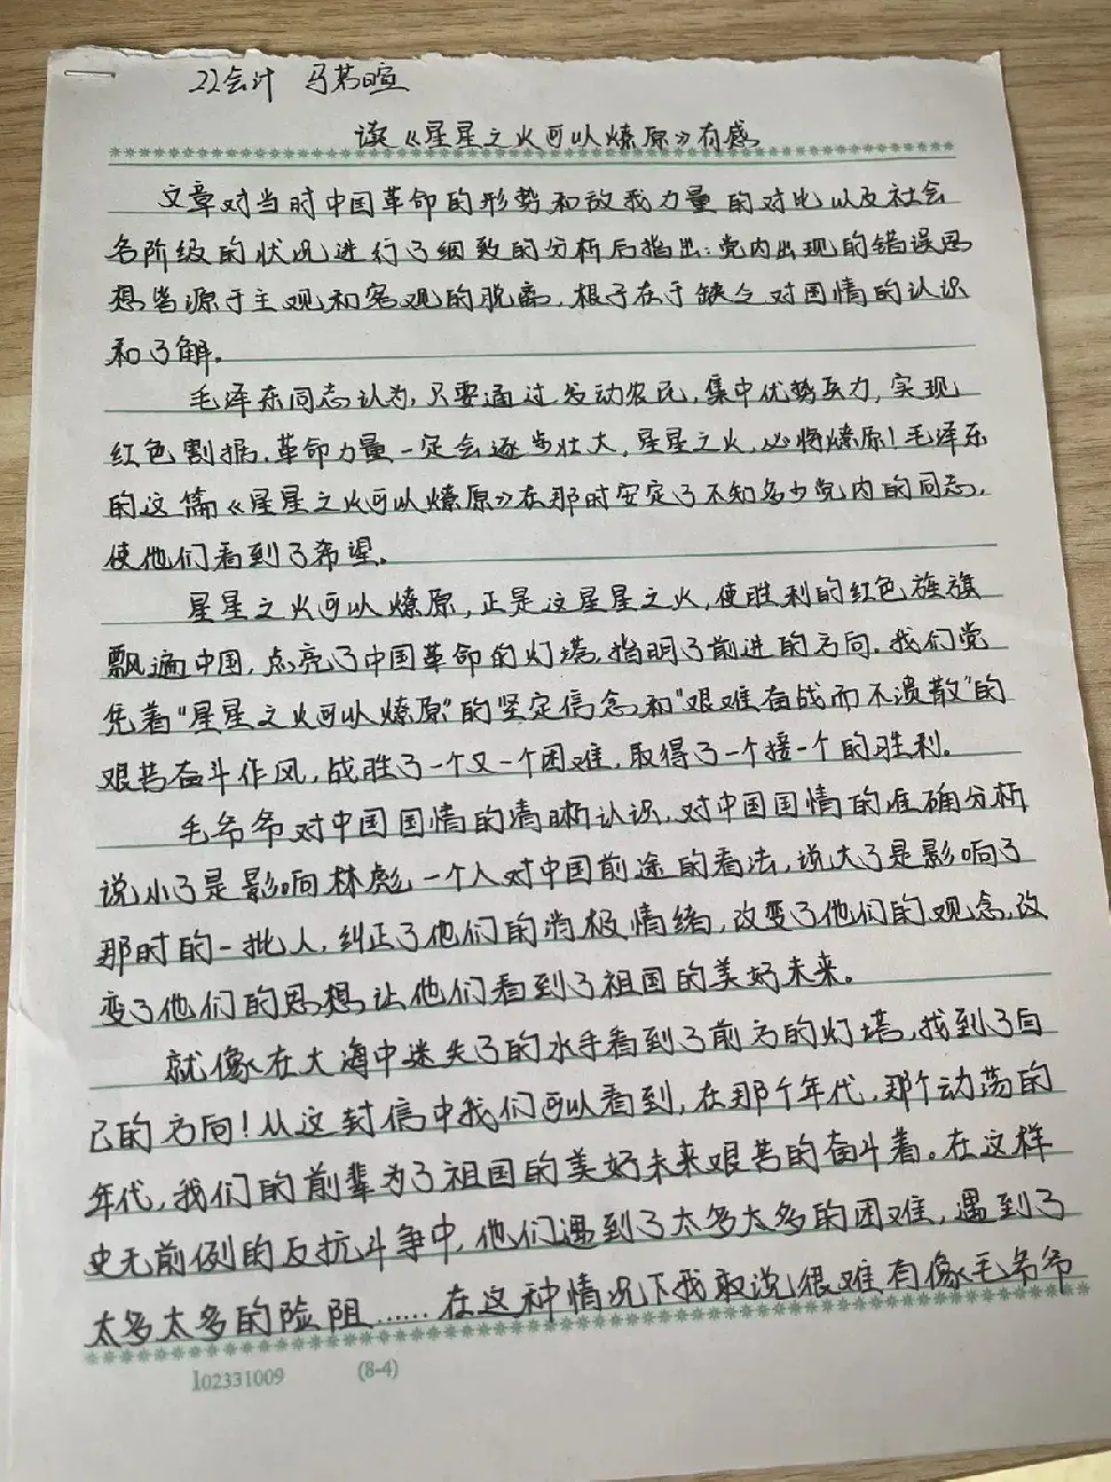 22会计 马若暄
读《星星之火可以燎原》有感
文章对当时中国革命的形势和敌我力量的对比以及社会
各阶级的状况进行了细致的分析后指出：党内出现的错误思
想皆源于主观和客观的脱离，根子在于缺乏对国情的认识
和了解。
毛泽东同志认为，只要通过发动农民，集中优势兵力，实现
红色割据，革命力量一定会逐步壮大，星星之火，必将燎原！毛泽东
的这篇《星星之火可以燎原》在那时安定了不知多少党内的同志，
使他们看到了希望。
星星之火可以燎原，正是这星星之火，使胜利的红色旌旗
飘遍中国，点亮了中国革命的灯塔，指明了前进的方向。我们党
凭着“星星之火可以燎原”的坚定信念和“艰难奋战而不溃散”的
艰苦奋斗作风，战胜了一个又一个困难，取得了一个接一个的胜利。
毛爷爷对中国国情的清晰认识，对中国国情的准确分析
说小了是影响林彪一个人对中国前途的看法，说大了是影响了
那时的一批人，纠正了他们的消极情绪，改变了他们的观念，改
变了他们的思想，让他们看到了祖国的美好未来。
就像在大海中迷失了的水手看到了前方的灯塔，找到了自
己的方向！从这封信中我们可以看到，在那个年代，那个动荡的
年代，我们的前辈为了祖国的美好未来艰苦的奋斗着。在这样
史无前例的反抗斗争中，他们遇到了太多太多的困难，遇到了
太多太多的险阻……在这种情况下我敢说很难有像毛爷爷
102331009 (8-4)